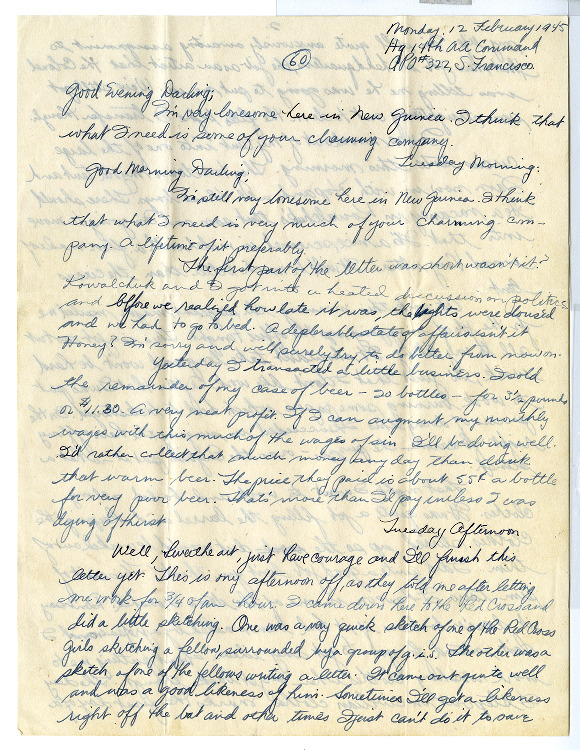 Monday, 12 February 1945
Hq 14th AA Command
APO #322, S. Francisco.
60
Good Evening Darling;
I'm very lonesome here in New Guinea. I think that
what I need is some of your charming company.
Tuesday Morning.
Good Morning Darling,
I'm still very lonesome here in New Guinea. I think
that what I need is very much of your charming com-
pany. A lifetime of it preferably.
The first part of the letter was short wasn't it?
Kowalchuk and I got into a heated discussion on politics
and before we realized how late it was, the lights were doused
and we had to go to bed. A deplorable state of affairs isn't it
Honey? I'm sorry and will surely try to do better from now on.
Yesterday I transacted a little business. I sold
the remainder of my case of beer - 20 bottles - for 3½ pounds
or $11.30. A very neat profit. If I can augment my monthly
wages with this much of the wages of sin I'll be doing well.
I'd rather collect that much money any day than drink
that warm beer. The price they paid is about 55¢ a bottle
for very poor beer. That's more than I'd pay unless I was
dying of thirst.
Tuesday Afternoon
Well, Sweetheart, just have courage and I'll finish this
letter yet. This is my afternoon off, as they told me after letting
me work for 3/4 of an hour. I came down here to the Red Cross and
did a little sketching. One was a very quick sketch of one of the Red Cross
girls sketching a fellow, surrounded by a group of g.i.s. The other was a
sketch of one of the fellows writing a letter. It came out quite well
and was a good likeness of him. Sometimes I'll get a likeness
right off the bat and other times I just can't do it to save